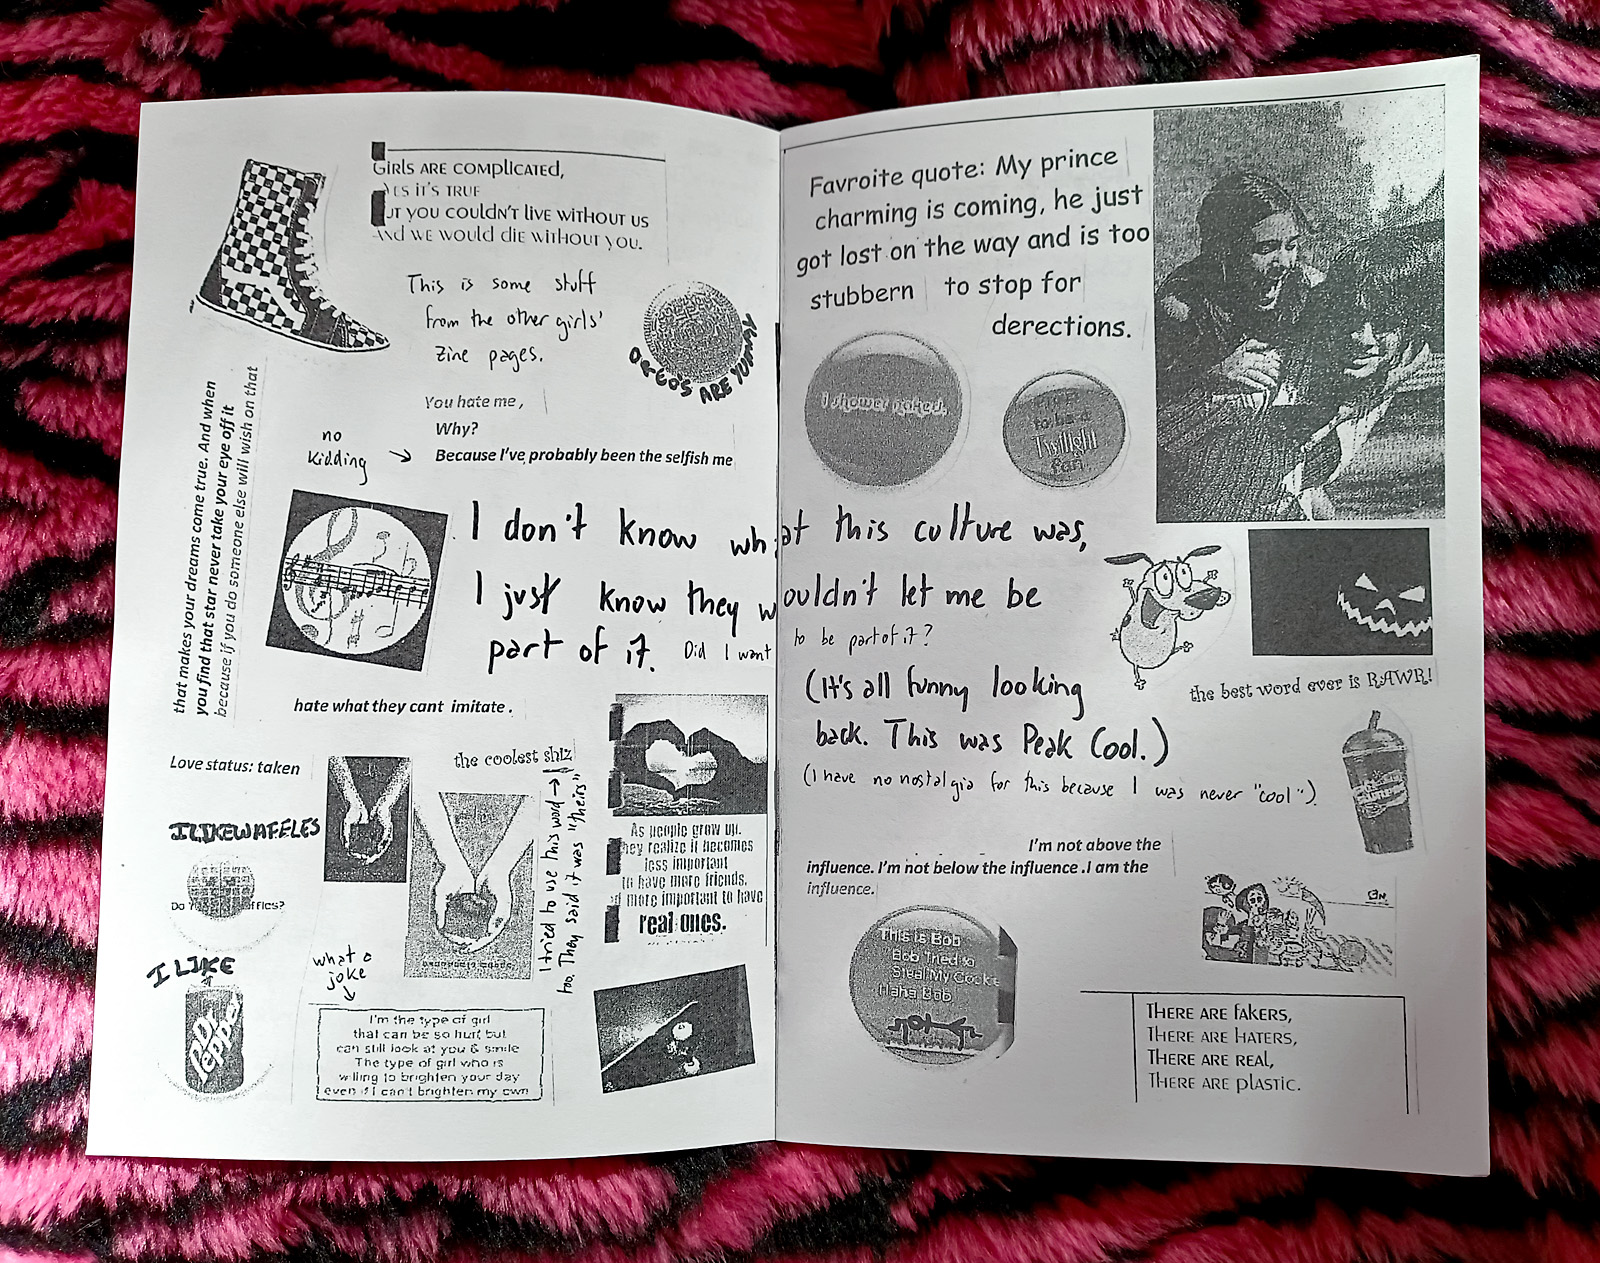 GIRLS ARE COMPLICATED,
YES IT'S TRUE
BUT YOU COULDN'T LIVE WITHOUT US
AND WE WOULD DIE WITHOUT YOU.
This is some stuff
from the other girls'
zine pages.
OREOS ARE YUMMY
that makes your dreams come true. And when
you find that star never take your eye off it
because if you do someone else will wish on that
You hate me,
Why?
no
kidding →
Because I've probably been the selfish me
I don't know what this culture was,
I just know they wouldn't let me be
part of it. Did I want to be part of it?
(It's all funny looking
back. This was Peak Cool.)
(I have no nostalgia for this because I was never "cool").
hate what they cant imitate.
Love status: taken
the coolest shiz
I tried to use this word →
too. They said it was "theirs"
I LIKE WAFFLES
I LIKE
Dr Pepper
what a
joke
I'm the type of girl
that can be so hurt but
can still look at you & smile
The type of girl who is
willing to brighten your day
even if I can't brighten my own
As people grow up,
they realize it becomes
less important
to have more friends,
and more important to have
real ones.
Favroite quote: My prince
charming is coming, he just
got lost on the way and is too
stubbern to stop for
derections.
I shower naked.
to be a
Twilight
fan.
the best word ever is RAWR!
I'm not above the
influence. I'm not below the influence .I am the
influence.
This is Bob
Bob Tried to
Steal My Cookie
Haha Bob
THERE ARE FAKERS,
THERE ARE HATERS,
THERE ARE REAL,
THERE ARE PLASTIC.